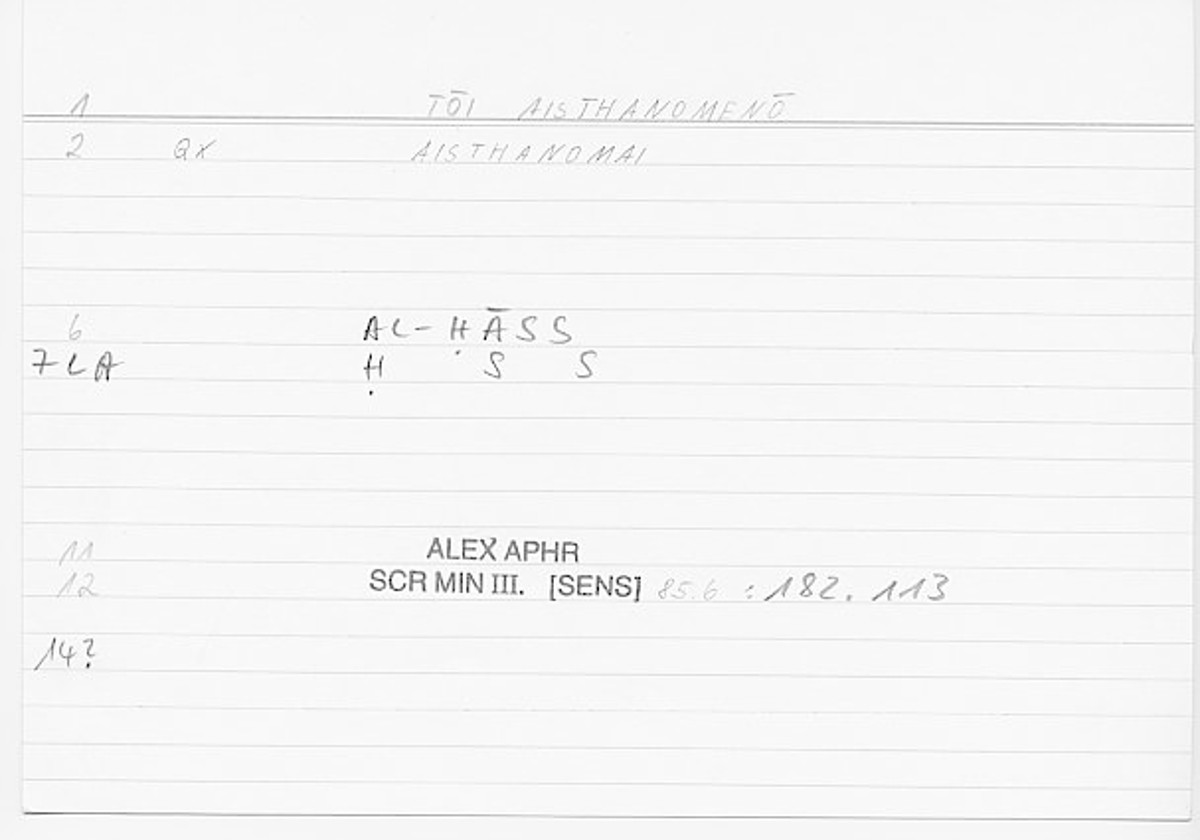 1 TŌI AISTHANOMENŌ
2 QX AISTHANOMAI
6 AL-ḤĀSS
7 LA Ḥ S S
11 ALEX APHR
12 SCR MIN III. [SENS] 85.6 : 182. 113
14?